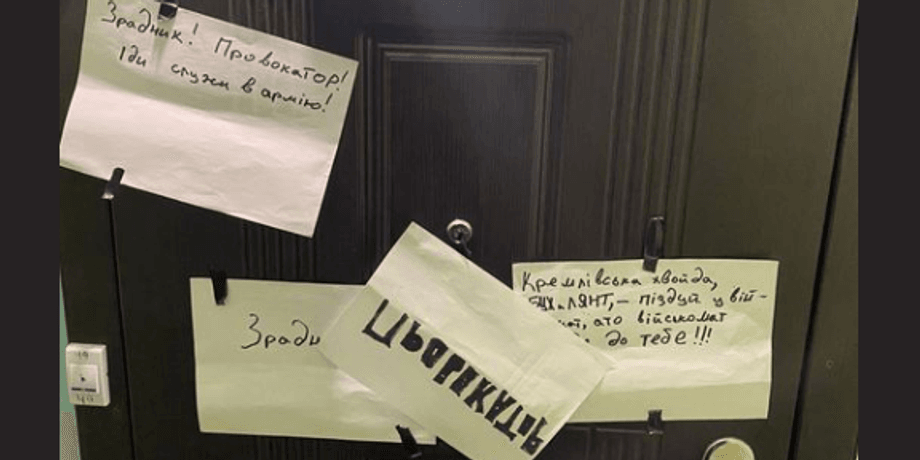 Зрадник! Провокатор!
Іди служи в армію!
Зрадн
ПровокАТор
Кремлівська хвойда,
піздуй у вій-
ато військомат
до тебе!!!